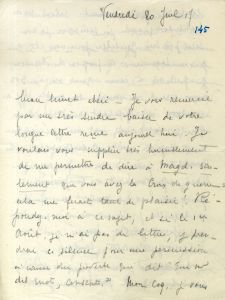 Vendredi 20 Juil 17
145
beau minet chéri – Je vous remercie
par un très tendre baiser de votre
longue lettre reçue aujourd'hui. Je
voulais vous supplier très humblement
de me permettre de dire à Magd. seu-
lement que vous avez la Croix de guerre
cela me ferait tant de plaisir! Ré-
pondez moi à ce sujet, et si le 1er
Août, je n'ai pas de lettre, je pren-
drai ce silence pour une permission
à cause du proverbe qui dit "Qui ne
dit mot, consent." Mon Coq, je vous